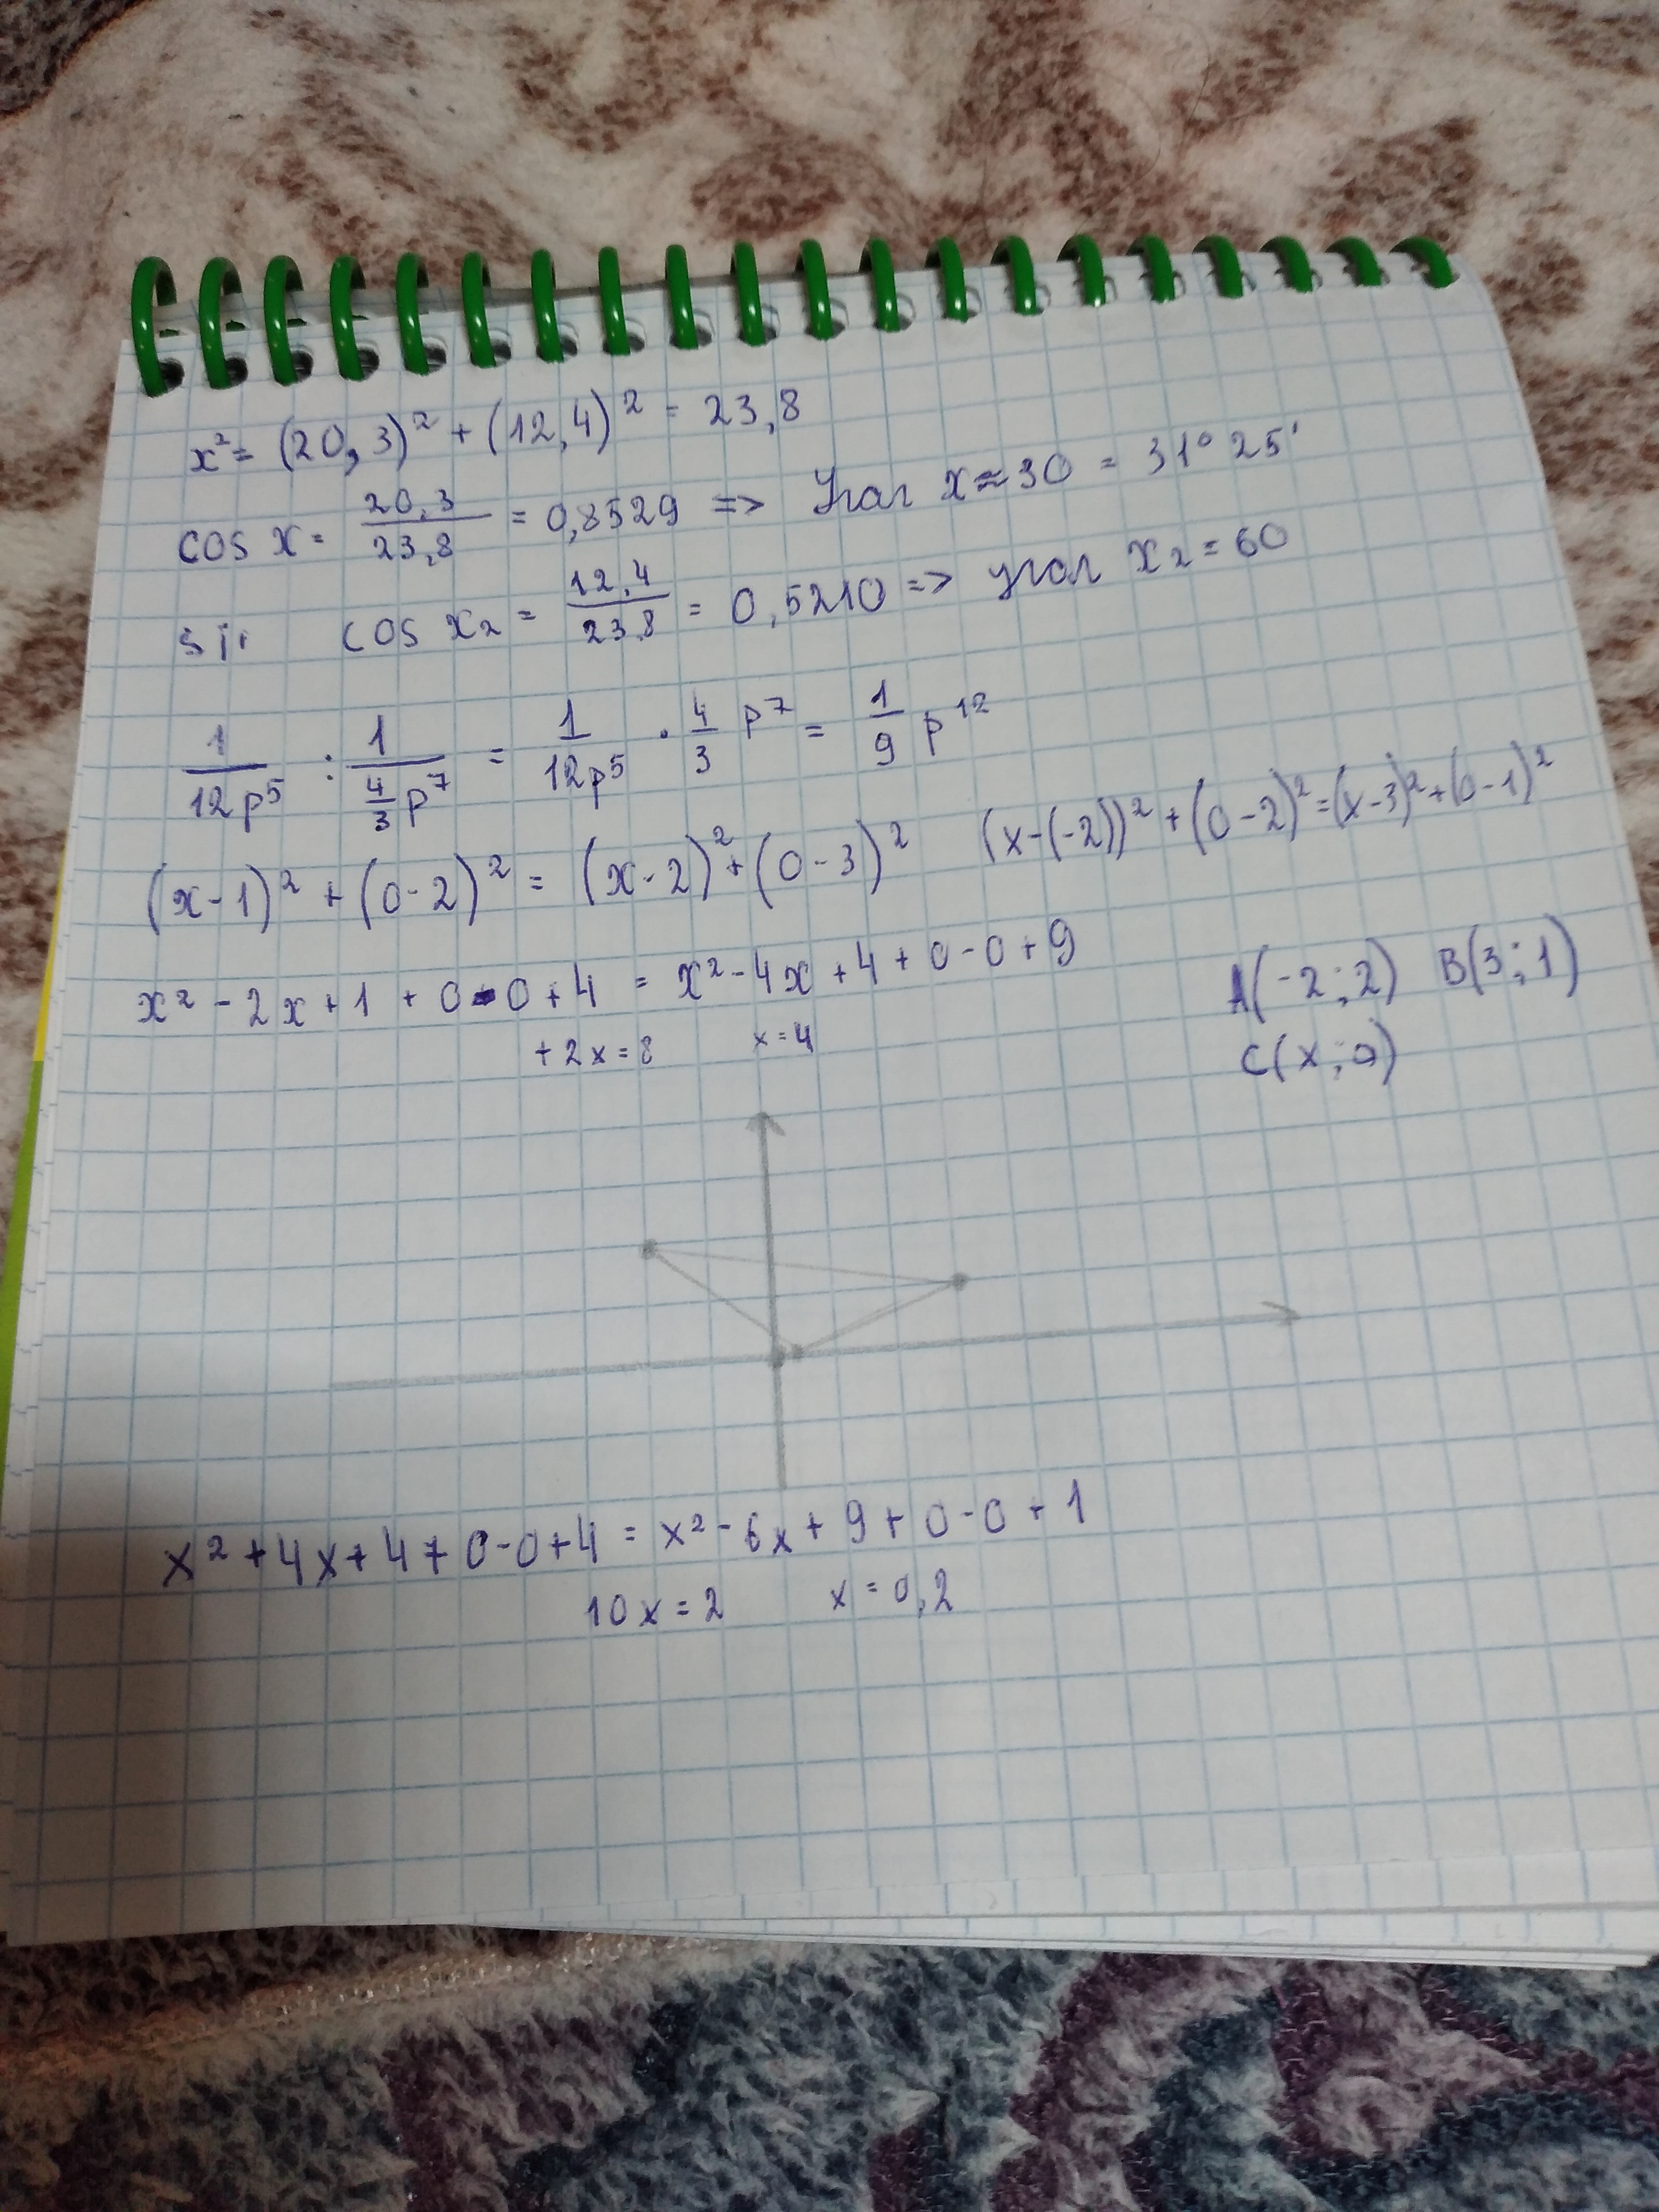 x² = (20,3)² + (12,4)² = 23,8
cos x = 20,3/23,8 = 0,8529 => Угол x ≈ 30 = 31° 25'
sin cos x₂ = 12,4/23,8 = 0,5210 => угол x₂ = 60
1/12p⁵ : 1/(4/3 p⁷) = 1/12p⁵ · 4/3 p⁷ = 1/9 p¹²
(x-1)² + (0-2)² = (x-2)² + (0-3)² (x-(-2))² + (0-2)² = (x-3)² + (0-1)²
x² - 2x + 1 + 0 - 0 + 4 = x² - 4x + 4 + 0 - 0 + 9
+ 2x = 8 x = 4
A(-2;2) B(3;1)
C(x;0)
x² + 4x + 4 + 0 - 0 + 4 = x² - 6x + 9 + 0 - 0 + 1
10x = 2 x = 0,2